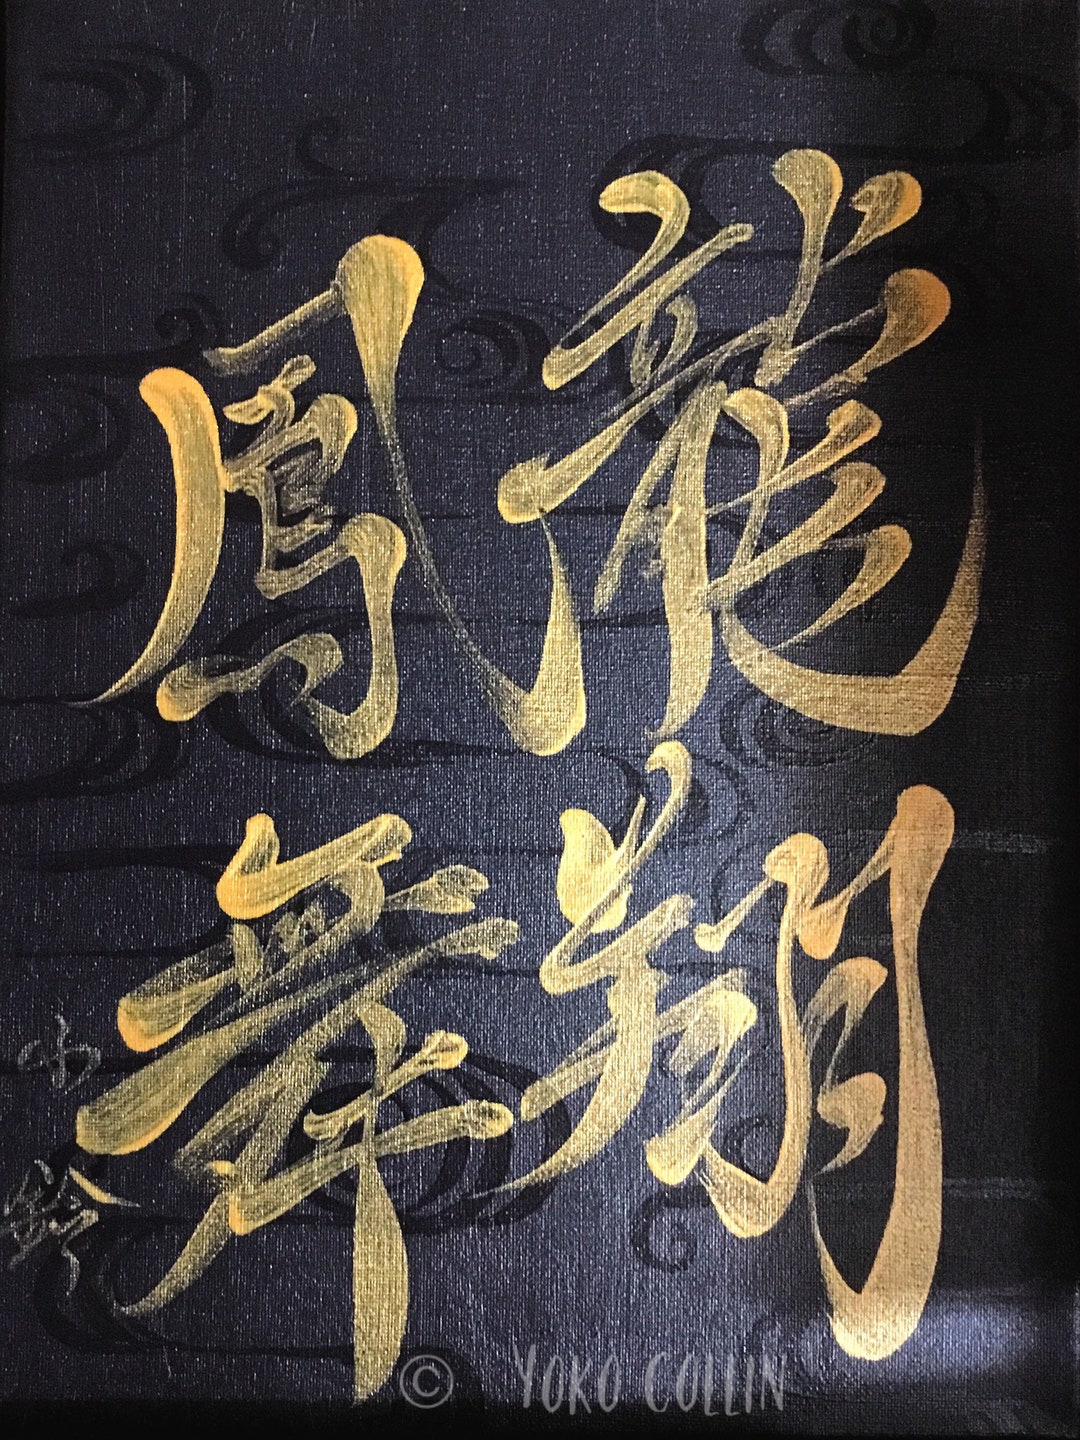 龍翔
鳳舞
小鈴
© YOKO COLLIN